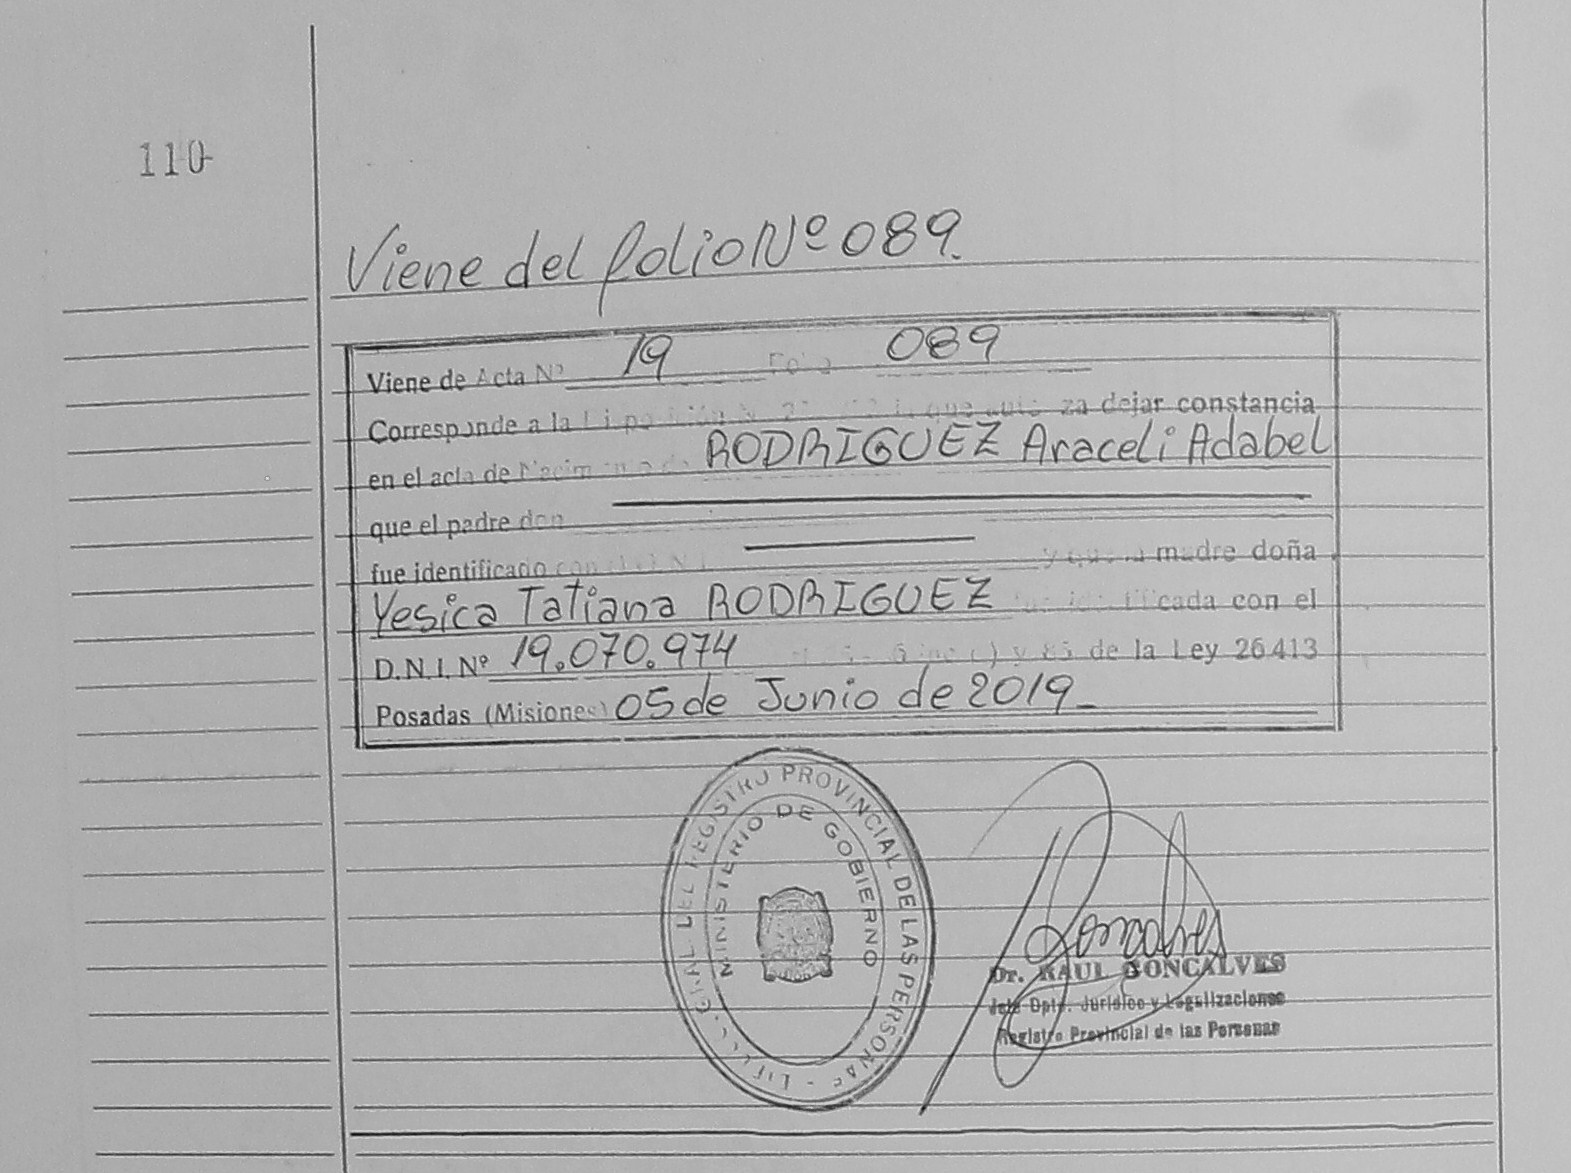 110
Viene del folio Nº 089.
Viene de Acta Nº 19 089
Corresponde a la que dejar constancia
en el acta de RODRIGUEZ Araceli Adabel
que el padre don
fue identificado con madre doña
Yesica Tatiana RODRIGUEZ con el
D.N.I. Nº 19.070.974 de la Ley 26413
Posadas (Misiones) 05 de Junio de 2019_
REGISTRO PROVINCIAL DE LAS PERSONAS
MINISTERIO DE GOBIERNO
Goncalves
Dr. RAUL GONCALVES
Jefe Dpto. Jurídico y Legalizaciones
Registro Provincial de las Personas